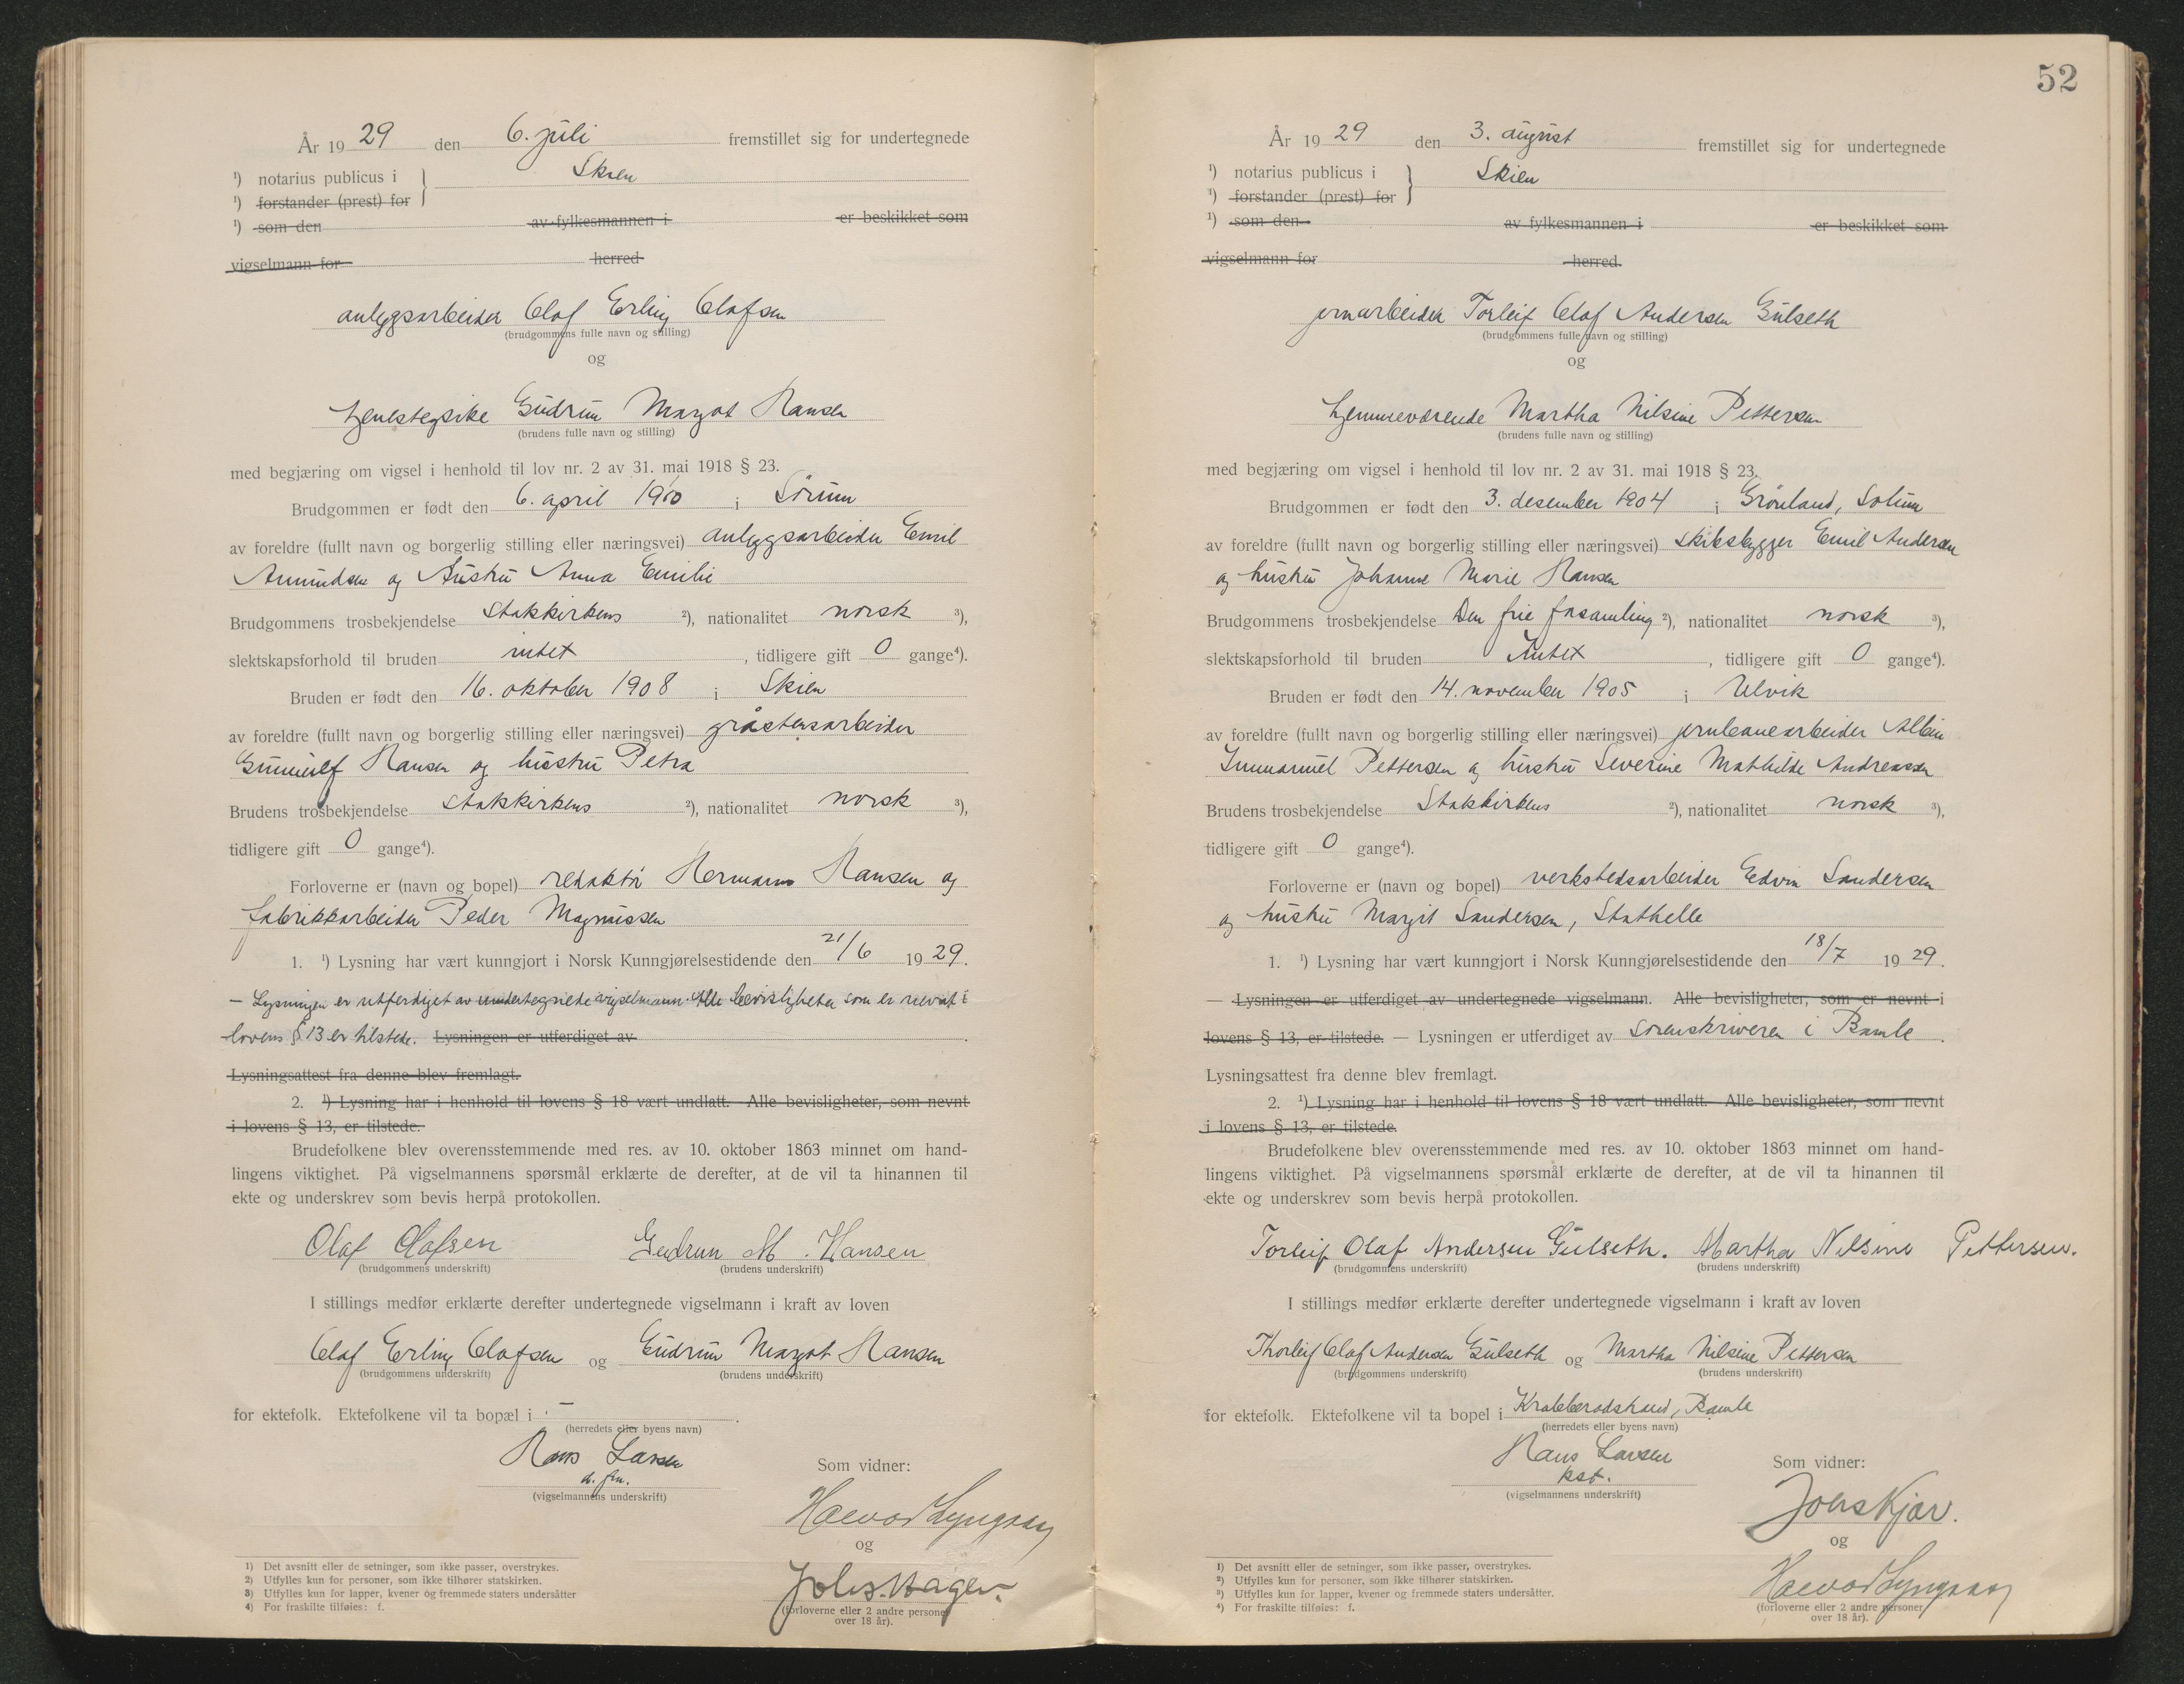 År 1929 den 6. juli fremstillet sig for undertegnede
¹) notarius publicus i } Skien
¹) forstander (prest) for
¹) som den av fylkesmannen i er beskikket som
vigselmann for herred
anleggsarbeider Olaf Erling Olafsen
(brudgommens fulle navn og stilling)
og
tjenestepike Gudrun Margot Hansen
(brudens fulle navn og stilling)
med begjæring om vigsel i henhold til lov nr. 2 av 31. mai 1918 § 23.
Brudgommen er født den 6. april 1900 i Sørum
av foreldre (fullt navn og borgerlig stilling eller næringsvei) anleggsarbeider Emil
Amundsen og hustru Anna Emilie
Brudgommens trosbekjendelse Statskirkens ²), nationalitet norsk ³),
slektskapsforhold til bruden intet, tidligere gift 0 gange⁴).
Bruden er født den 16. oktober 1908 i Skien
av foreldre (fullt navn og borgerlig stilling eller næringsvei) gråstensarbeider
Gunnulf Hansen og hustru Petra
Brudens trosbekjendelse Statskirkens ²), nationalitet norsk ³),
tidligere gift 0 gange⁴).
Forloverne er (navn og bopel) redaktør Hermann Hansen og
fabrikkarbeider Peder Magnussen
1. ¹) Lysning har vært kunngjort i Norsk Kunngjørelsestidende den 21/6 1929.
— Lysningen er utferdiget av undertegnede vigselmann. Alle bevisligheter som er nevnt i
lovens § 13 er tilstede. Lysningen er utferdiget av
Lysningsattest fra denne blev fremlagt.
2. ¹) Lysning har i henhold til lovens § 18 vært undlatt. Alle bevisligheter, som nevnt
i lovens § 13, er tilstede.
Brudefolkene blev overensstemmende med res. av 10. oktober 1863 minnet om hand-
lingens viktighet. På vigselmannens spørsmål erklærte de derefter, at de vil ta hinannen til
ekte og underskrev som bevis herpå protokollen.
Olaf Olafsen Gudrun M. Hansen
(brudgommens underskrift) (brudens underskrift)
I stillings medfør erklærte derefter undertegnede vigselmann i kraft av loven
Olaf Erling Olafsen og Gudrun Margot Hansen
(brudgommens underskrift) (brudens underskrift)
for ektefolk. Ektefolkene vil ta bopæl i —.
(herredets eller byens navn)
Hans Larsen
(vigselmannens underskrift)
Som vidner:
Haavard Lyngaas
og
Johs. Hagen.
(forloverne eller 2 andre personer
over 18 år).
1) Det avsnitt eller de setninger, som ikke passer, overstrykes.
2) Utfylles kun for personer, som ikke tilhører statskirken.
3) Utfylles kun for lapper, kvener og fremmede staters undersåtter
4) For fraskilte tilføies: f.
52
År 1929 den 3. august fremstillet sig for undertegnede
¹) notarius publicus i } Skien
¹) forstander (prest) for
¹) som den av fylkesmannen i er beskikket som
vigselmann for herred.
jernarbeider Torleif Olaf Andersen Gulseth
(brudgommens fulle navn og stilling)
og
hjemmeværende Martha Nilsine Pettersen
(brudens fulle navn og stilling)
med begjæring om vigsel i henhold til lov nr. 2 av 31. mai 1918 § 23.
Brudgommen er født den 3. desember 1904 i Grønland, Solum
av foreldre (fullt navn og borgerlig stilling eller næringsvei) skibsbygger Emil Andersen
og hustru Johanne Marie Hansen
Brudgommens trosbekjendelse Den frie forsamling ²), nationalitet norsk ³),
slektskapsforhold til bruden Intet, tidligere gift 0 gange⁴).
Bruden er født den 14. november 1905 i Ulvik
av foreldre (fullt navn og borgerlig stilling eller næringsvei) jernbanearbeider Albin
Immanuel Pettersen og hustru Severine Mathilde Andreassen
Brudens trosbekjendelse Statskirkens ²), nationalitet norsk ³),
tidligere gift 0 gange⁴).
Forloverne er (navn og bopel) verkstedsarbeider Edvin Sandersen
og hustru Margit Sandersen, Stathelle
1. ¹) Lysning har vært kunngjort i Norsk Kunngjørelsestidende den 18/7 1929.
— Lysningen er utferdiget av undertegnede vigselmann. Alle bevisligheter, som er nevnt i
lovens § 13, er tilstede. — Lysningen er utferdiget av sorenskriveren i Bamle.
Lysningsattest fra denne blev fremlagt.
2. ¹) Lysning har i henhold til lovens § 18 vært undlatt. Alle bevisligheter, som nevnt
i lovens § 13, er tilstede.
Brudefolkene blev overensstemmende med res. av 10. oktober 1863 minnet om hand-
lingens viktighet. På vigselmannens spørsmål erklærte de derefter, at de vil ta hinannen til
ekte og underskrev som bevis herpå protokollen.
Torleif Olaf Andersen Gulseth. Martha Nilsine Pettersen.
(brudgommens underskrift) (brudens underskrift)
I stillings medfør erklærte derefter undertegnede vigselmann i kraft av loven
Thorleif Olaf Andersen Gulseth og Martha Nilsine Pettersen
(brudgommens underskrift) (brudens underskrift)
for ektefolk. Ektefolkene vil ta bopel i Krabberødstrand, Bamle
(herredets eller byens navn)
Hans Larsen
kst.
(vigselmannens underskrift)
Som vidner:
Johs Kjær.
og
Haavard Lyngaas
(forloverne eller 2 andre personer
over 18 år).
1) Det avsnitt eller de setninger, som ikke passer, overstrykes.
2) Utfylles kun for personer, som ikke tilhører statskirken.
3) Utfylles kun for lapper, kvener og fremmede staters undersåtter.
4) For fraskilte tilføies: f.